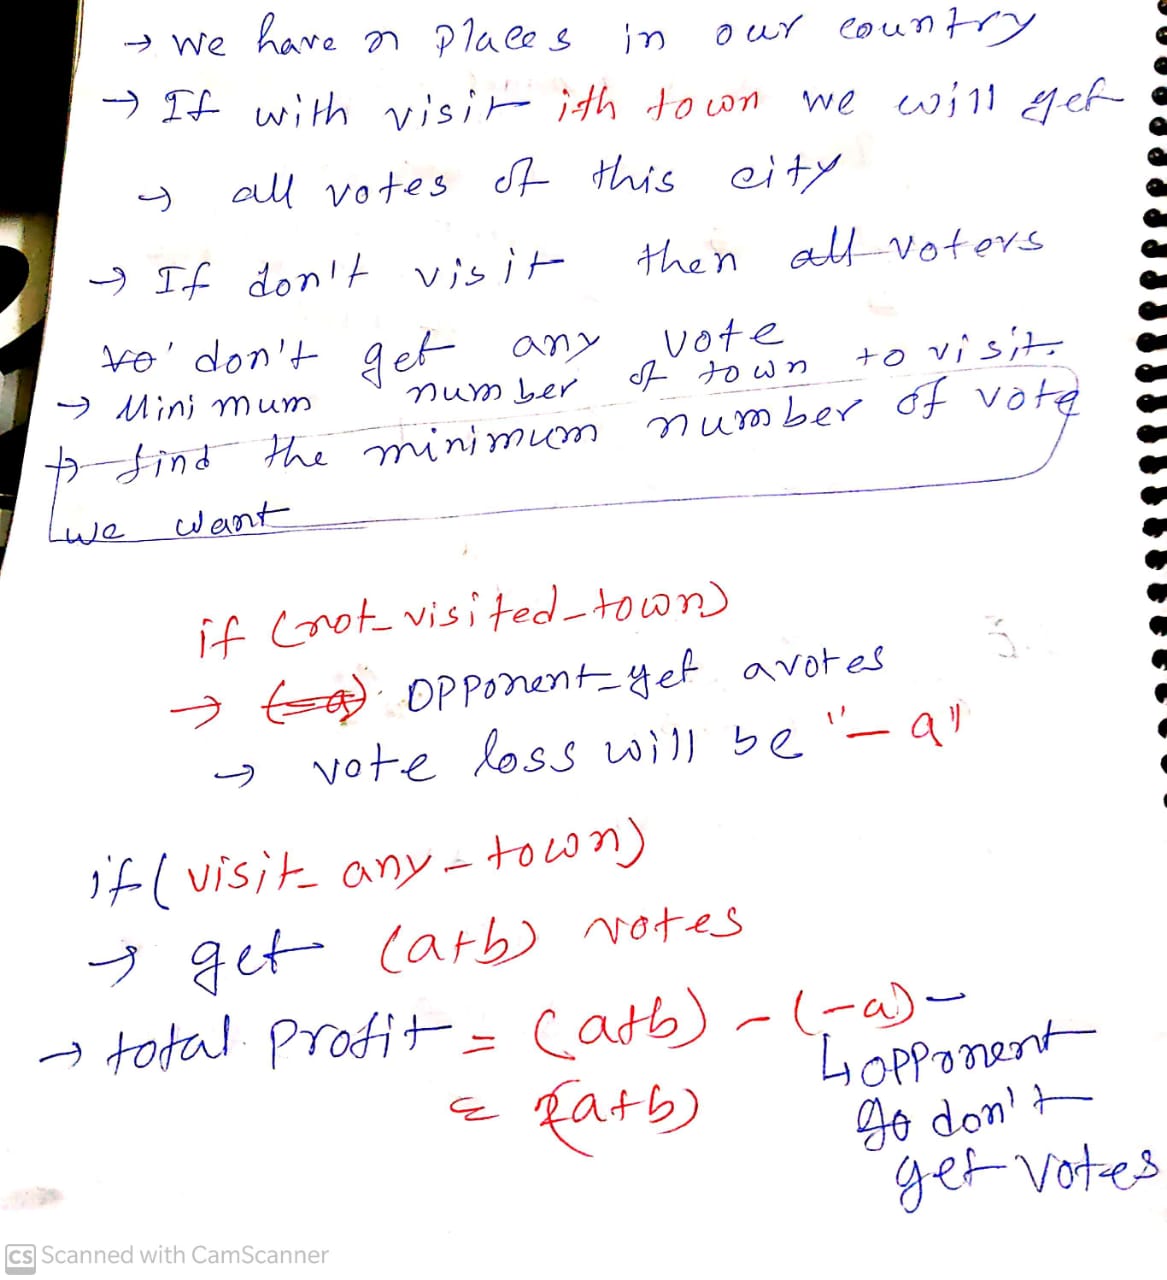 → We have n places in our country
→ If with visit ith town we will get
→ all votes of this city
→ If don't visit then all voters
vo' don't get any vote
→ Minimum number of town to visit.
→ find the minimum number of vote
we want
if (not_visited_town)
→ (-a) opponent_get a votes
→ vote loss will be "-a"
if (visit_any_town)
→ get (a+b) votes
→ total profit = (a+b) - (-a) -
= (2a+b)
↳ opponent
go don't
get votes
CS Scanned with CamScanner